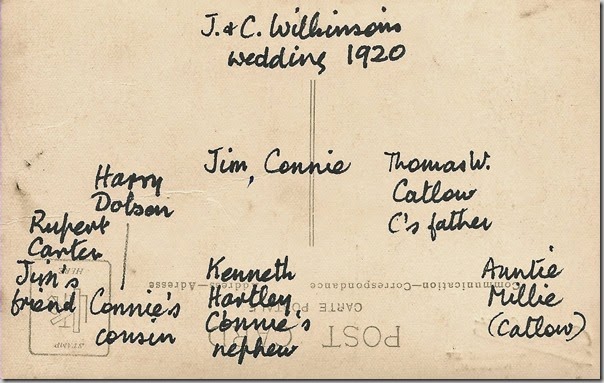 J. & C. Wilkinsons
wedding 1920
Jim, Connie
Thomas W.
Catlow
C's father
Harry
Dobson
Connie's
cousin
Rupert
Carter
Jim's
friend
Kenneth
Hartley
Connie's
nephew
Auntie
Millie
(Catlow)
Communication–Correspondance Address–Adresse
CARTE POSTALE
POST CARD
HERE
STAMP